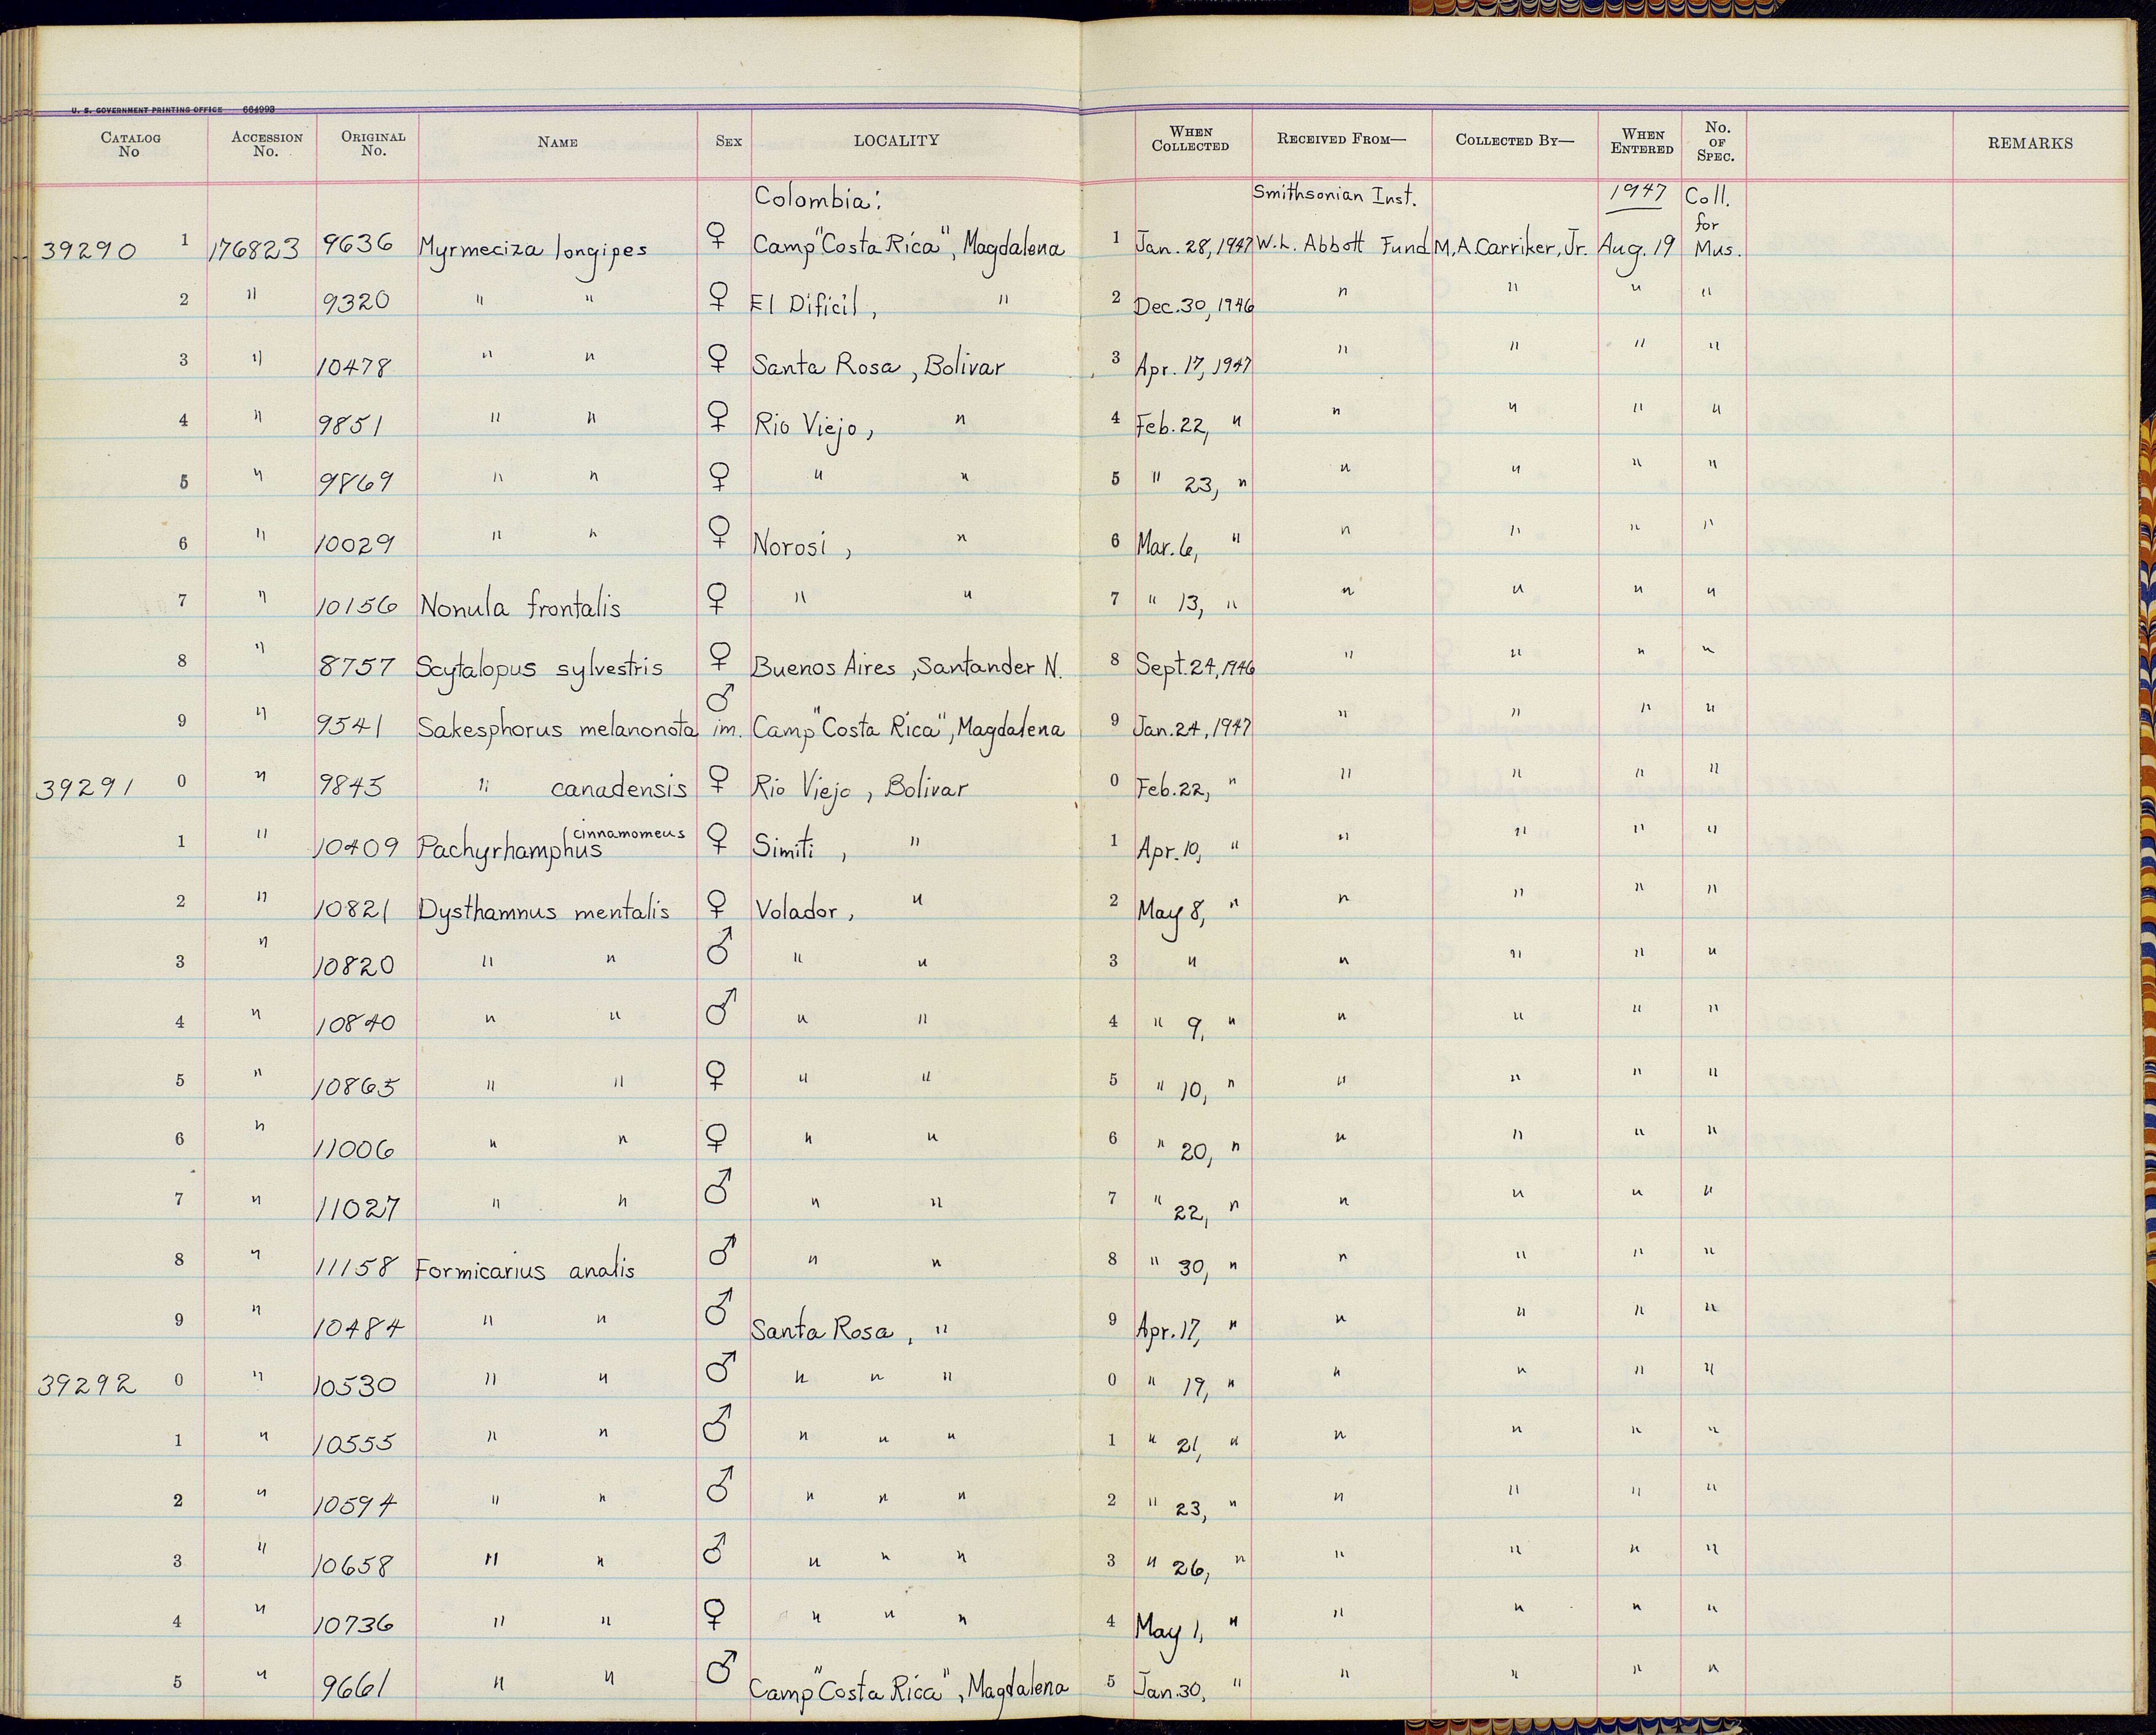 U. S. GOVERNMENT PRINTING OFFICE 664993
CATALOG No ACCESSION No. ORIGINAL No. NAME SEX LOCALITY WHEN COLLECTED RECEIVED FROM— COLLECTED BY— WHEN ENTERED No. OF SPEC. REMARKS
Colombia: Smithsonian Inst. 1947 Coll. for
39290 1 176823 9636 Myrmeciza longipes ♀ Camp "Costa Rica", Magdalena 1 Jan. 28, 1947 W. L. Abbott Fund M. A. Carriker, Jr. Aug. 19 Mus.
2 " 9320 " " ♀ El Dificil, " 2 Dec. 30, 1946 " " " "
3 " 10478 " " ♀ Santa Rosa, Bolivar 3 Apr. 17, 1947 " " " "
4 " 9851 " " ♀ Rio Viejo, " 4 Feb. 22, " " " " "
5 " 9869 " " ♀ " " 5 " 23, " " " " "
6 " 10029 " " ♀ Norosi, " 6 Mar. 6, " " " " "
7 " 10156 Nonula frontalis ♀ " " 7 " 13, " " " " "
8 " 8757 Scytalopus sylvestris ♀ Buenos Aires, Santander N. 8 Sept. 24, 1946 " " " "
9 " 9541 Sakesphorus melanonota ♂ im. Camp "Costa Rica", Magdalena 9 Jan. 24, 1947 " " " "
39291 0 " 9845 " canadensis ♀ Rio Viejo, Bolivar 0 Feb. 22, " " " " "
1 " 10409 Pachyrhamphus cinnamomeus ♀ Simiti, " 1 Apr. 10, " " " " "
2 " 10821 Dysthamnus mentalis ♀ Volador, " 2 May 8, " " " " "
3 " 10820 " " ♂ " " 3 " " " " "
4 " 10840 " " ♂ " " 4 " 9, " " " " "
5 " 10865 " " ♀ " " 5 " 10, " " " " "
6 " 11006 " " ♀ " " 6 " 20, " " " " "
7 " 11027 " " ♂ " " 7 " 22, " " " " "
8 " 11158 Formicarius analis ♂ " " 8 " 30, " " " " "
9 " 10484 " " ♂ Santa Rosa, " 9 Apr. 17, " " " " "
39292 0 " 10530 " " ♂ " " " 0 " 19, " " " " "
1 " 10555 " " ♂ " " " 1 " 21, " " " " "
2 " 10594 " " ♂ " " " 2 " 23, " " " " "
3 " 10658 " " ♂ " " " 3 " 26, " " " " "
4 " 10736 " " ♀ " " " 4 May 1, " " " " "
5 " 9661 " " ♂ Camp "Costa Rica", Magdalena 5 Jan. 30, " " " " "